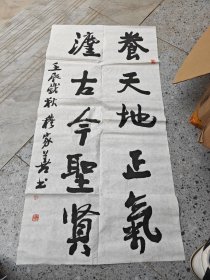 養天地正氣
灋古今聖賢
壬辰歲秋 穆家善书